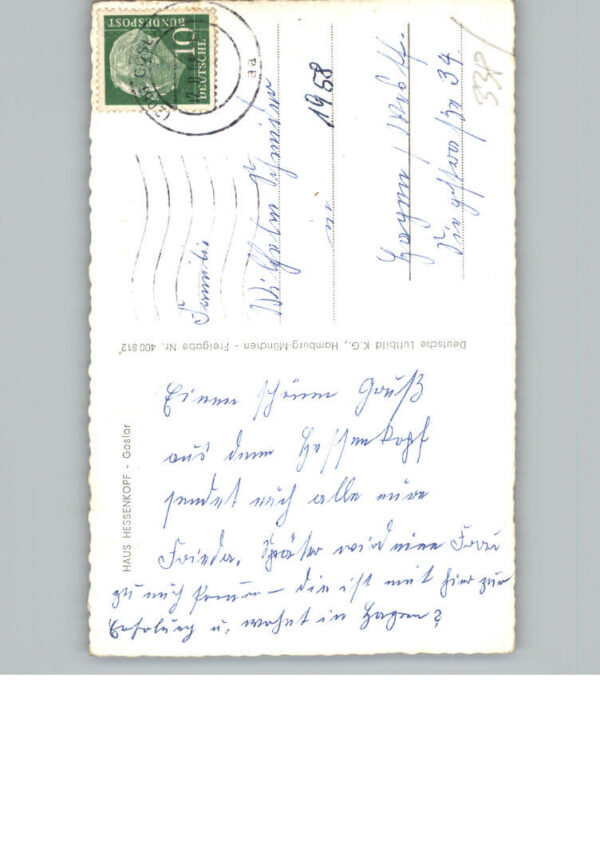 DEUTSCHE
BUNDESPOST
10
aa
Familie
Wilhelm Schmidt
in
1958
Hagen / Westf.
34
338
Deutsche Luftbild K.G., Hamburg-München - Freigabe Nr. 400812
HAUS HESSENKOPF - Goslar
Einen schönen Gruß
aus dem Hessenkopf
sendet euch alle eure
Frieda. Später wird eine Frau
zu euch kommen - die ist mit hier zur
Erholung u. wohnt in Hagen?